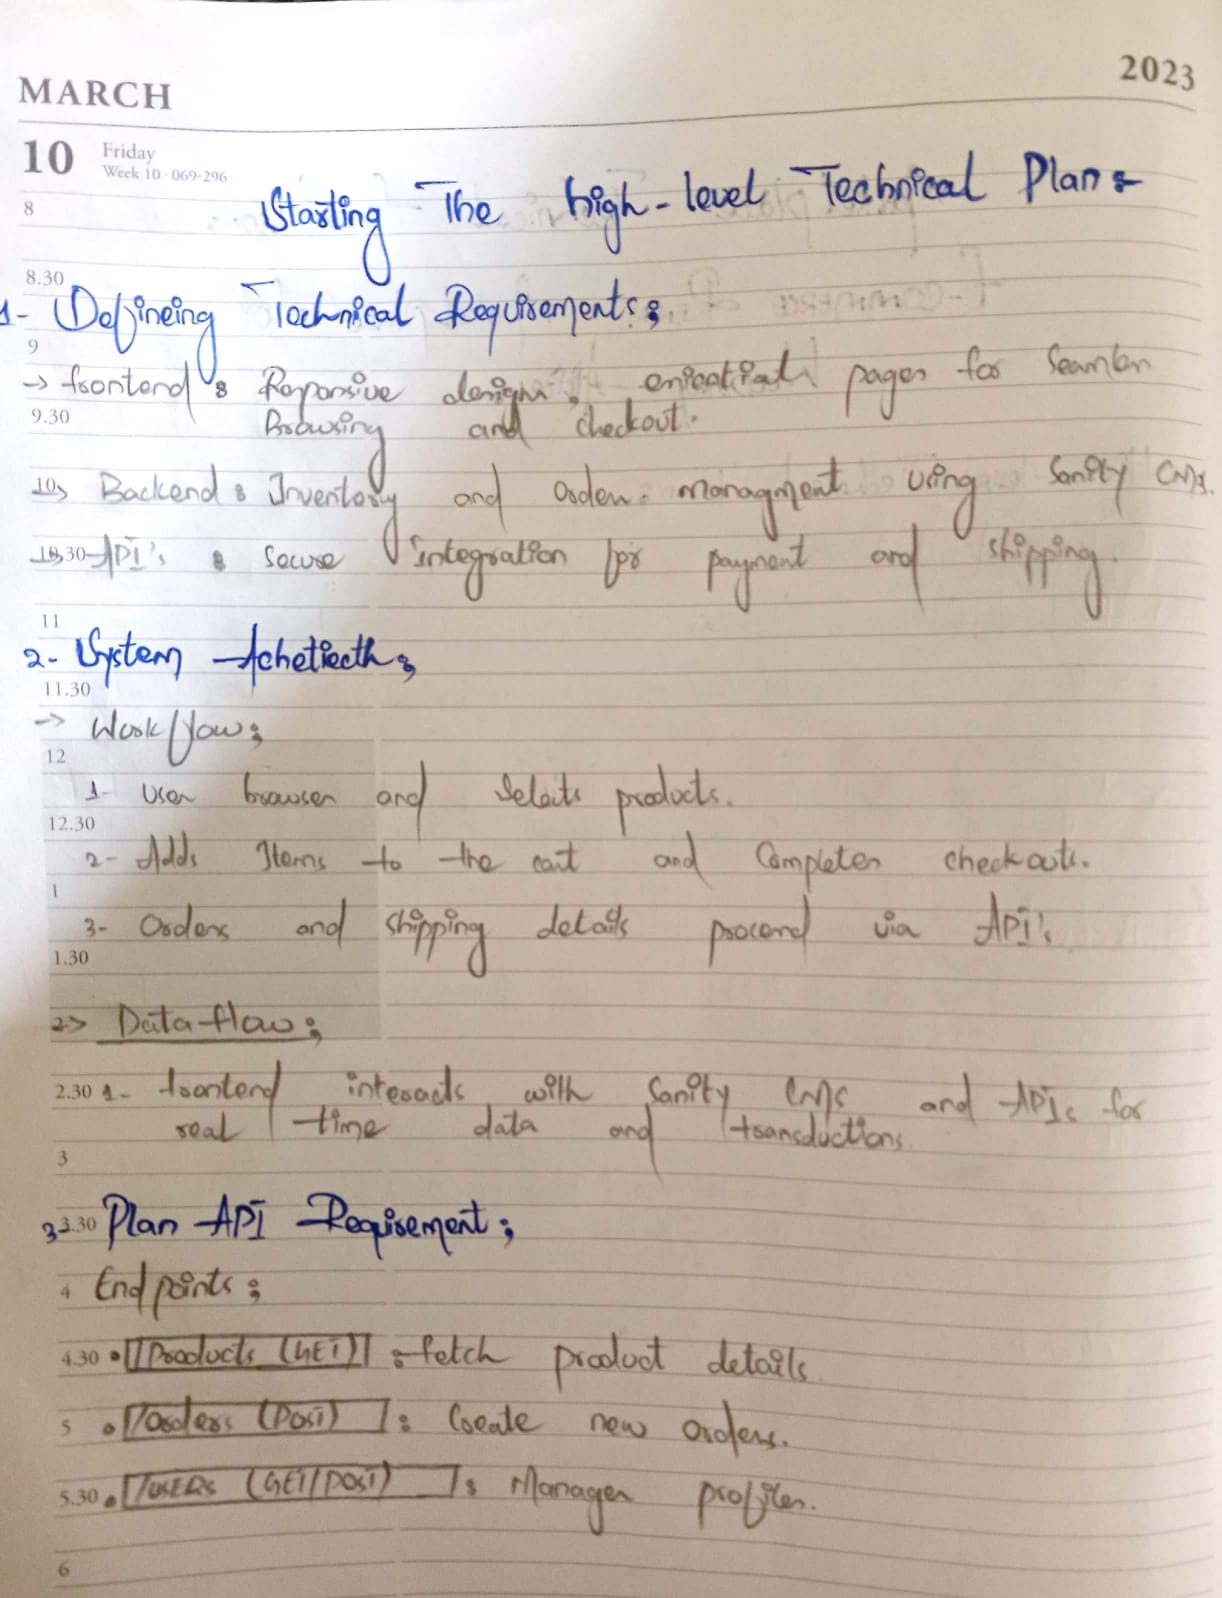 MARCH
2023
10 Friday
Week 10 · 069-296
Starting The high-level Technical Plan:
8
8.30
1- Defineing Technical Requirements:
9
→ frontend : Reponsive design, pages for Seamless
9.30
Browsing and checkout.
10 → Backend : Inventory and order managment using Sanity CMS.
10.30 → API's : Secure integration for payment and shipping.
11
2- System Achetiecth:
11.30
→ Work flow:
12
1- User browses and Selects products.
12.30
2- Adds Items to the cart and Completes checkouts.
1
3- Orders and shipping details procend via API's
1.30
2 → Data-flow:
2.30 1- frontend interacts with Sanity CMS and APIs for
real time data and transductions
3
3 3.30 Plan API Requirement:
4 End points:
4.30 • /Products (GET) : fetch product details
5 • /Orders (POST) : Create new orders.
5.30 • /USERS (GET/POST) : Manages profiles.
6